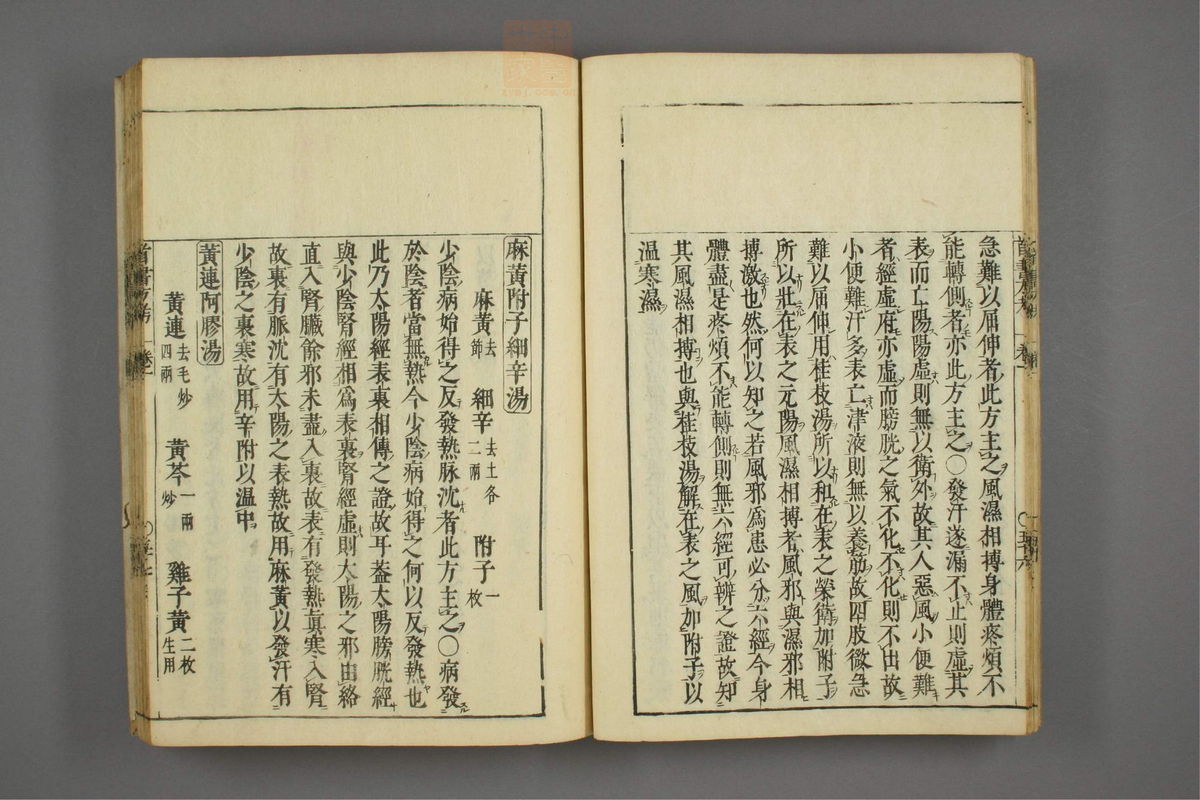 急難以屈伸者此方主之風濕相搏身體疼煩不
能轉側者亦此方主之〇發汗遂漏不止則虛其
表而亡陽陽虛則無以衛外故其人惡風小便難
者經虛府亦虛而膀胱之氣不化不化則不出故
小便難汗多表亡津液則無以養筋故四肢微急
難以屈伸用桂枝湯所以和在表之榮衛加附子
所以壯在表之元陽風濕相搏者風邪與濕邪相
搏激也然何以知之若風邪為患必分六經今身
體盡是疼煩不能轉側則無六經可辨之證故知
其風濕相搏也與桂枝湯解在表之風加附子以
温寒濕
麻黃附子細辛湯
麻黃去節 細辛去土各二兩 附子一枚
少陰病始得之反發熱脉沈者此方主之〇病發
於陰者當無熱今少陰病始得之何以反發熱也
此乃太陽經表裏相傳之證故耳葢太陽膀胱經
與少陰腎經相為表裏腎經虛則太陽之邪由絡
直入腎臟餘邪未盡入裏故表有發熱眞寒入腎
故裏有脈沈有太陽之表熱故用麻黃以發汗有
少陰之裏寒故用辛附以温中
黃連阿膠湯
黃連去毛炒四兩 黃芩一兩炒 雞子黃二枚生用